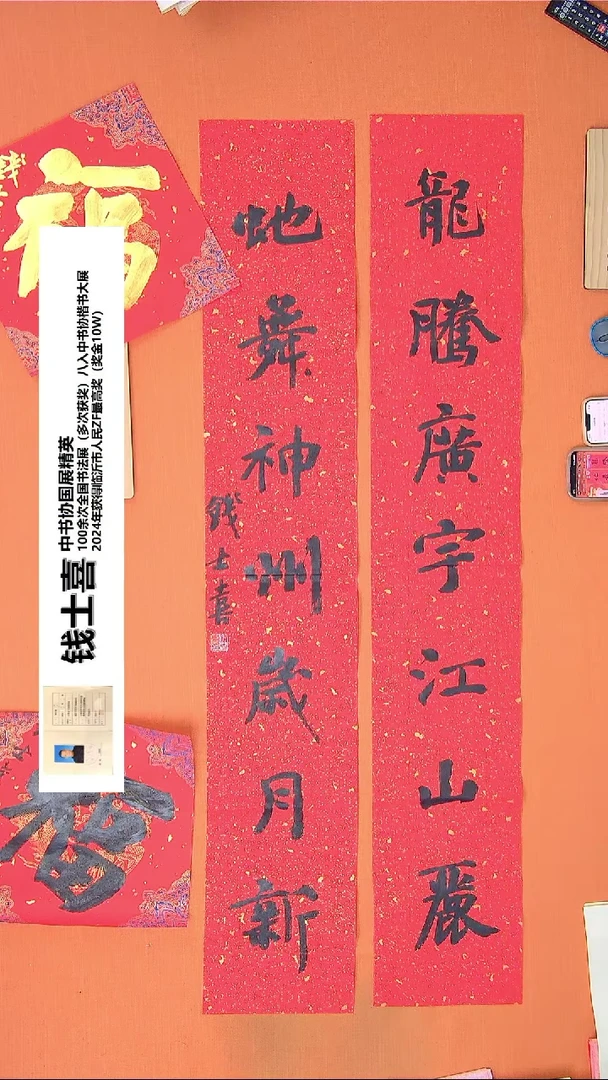 龍騰廣宇江山麗
虵舞神州歲月新
钱士喜
福
钱士
福
钱士喜
中书协国展精英
100余次全国书法展（多次获奖）八入中书协楷书大展
2024年获得临沂市人民ZF最高奖（奖金10W）